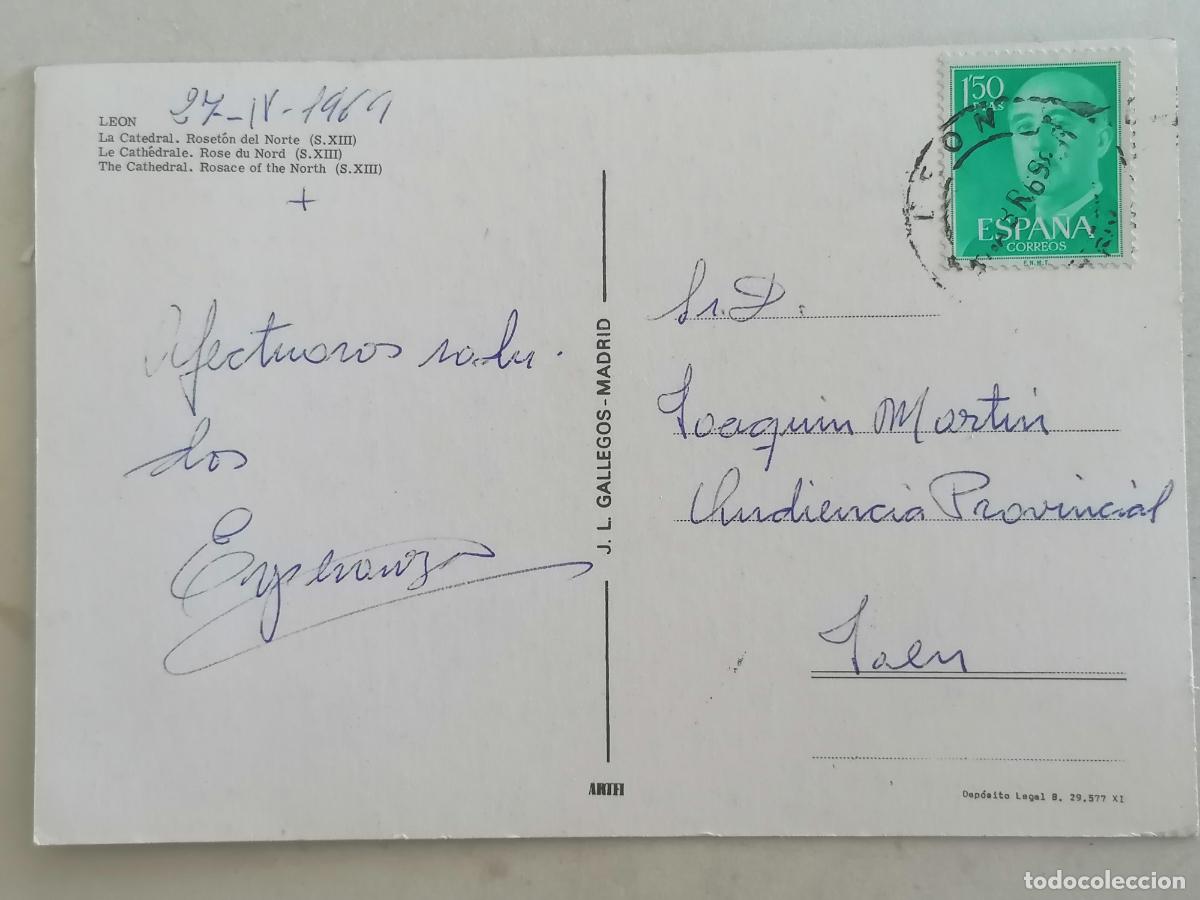 27-IV-1969
LEON
La Catedral. Rosetón del Norte (S.XIII)
Le Cathédrale. Rose du Nord (S.XIII)
The Cathedral. Rosace of the North (S.XIII)
+
Afectuosos salu-
dos
Esperanza
J. L. GALLEGOS-MADRID
ARTFI
1'50
PTAS
ESPAÑA
CORREOS
F.N.M.T.
LEON
Sr. D.:
Joaquin Martin
Audiencia Provincial
Jaen
Depósito Legal B. 29.577 XI
todocoleccion